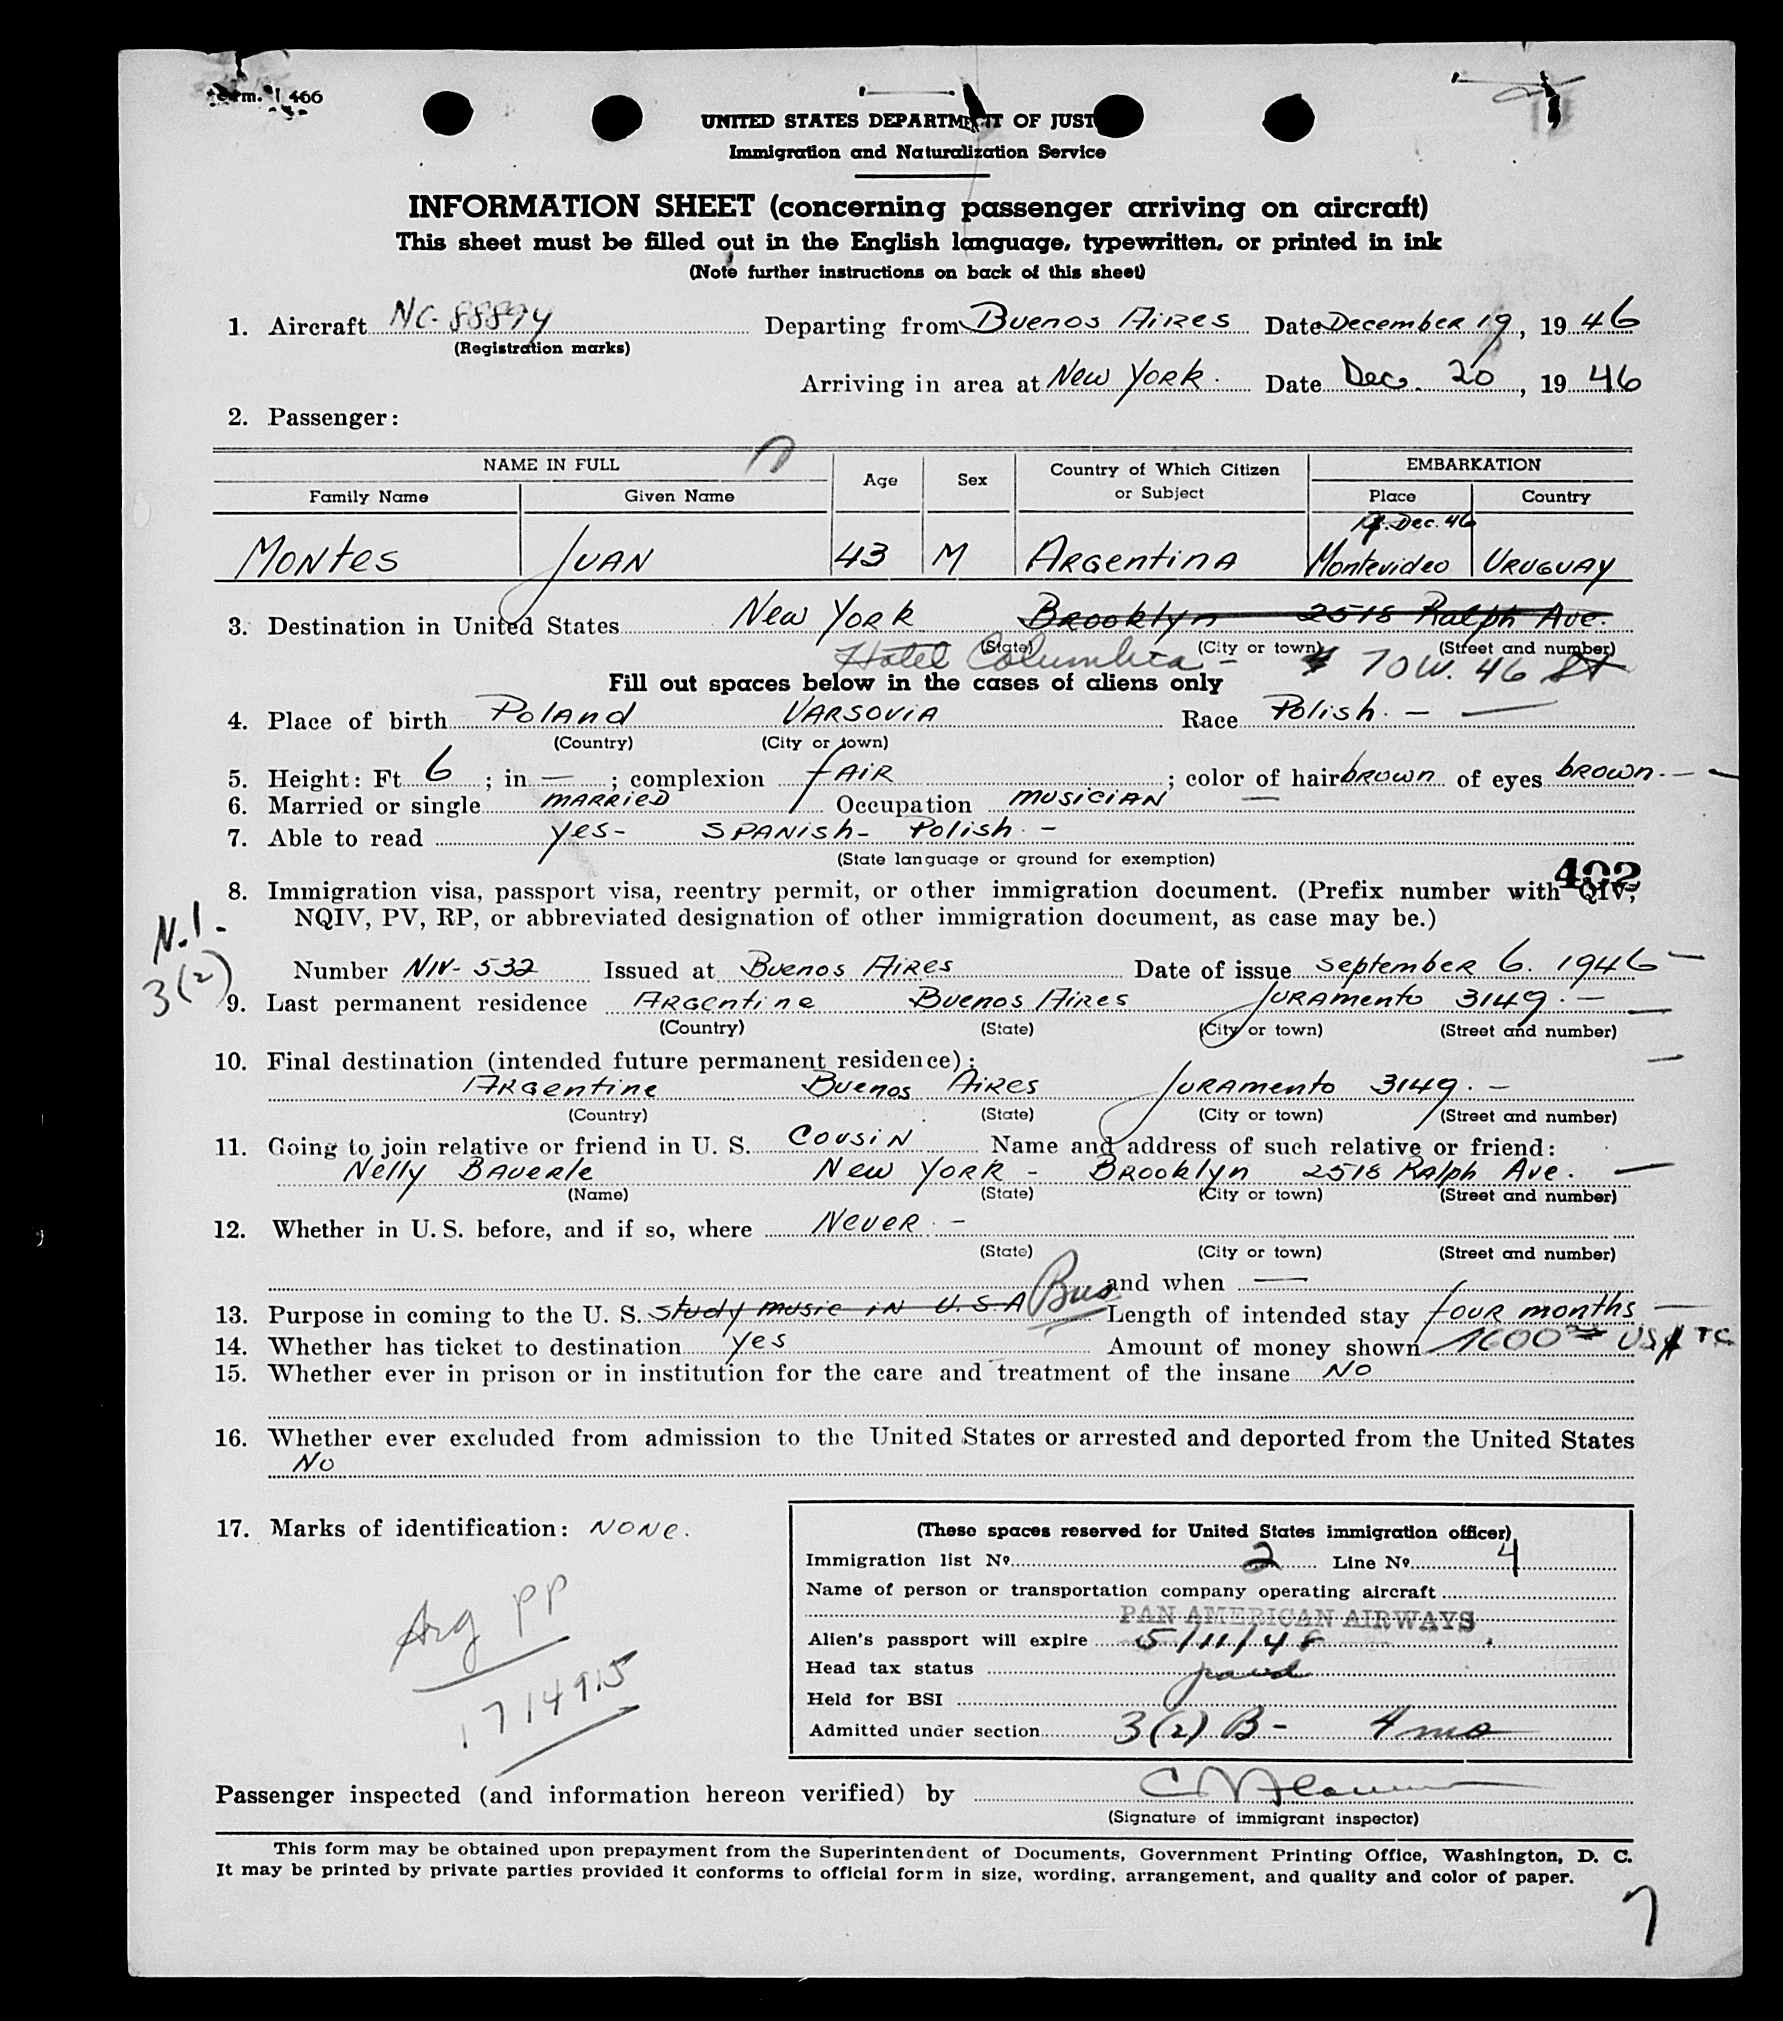 Form. I 466
UNITED STATES DEPARTMENT OF JUST
Immigration and Naturalization Service
INFORMATION SHEET (concerning passenger arriving on aircraft)
This sheet must be filled out in the English language, typewritten, or printed in ink
(Note further instructions on back of this sheet)
1. Aircraft NC-88894 Departing from Buenos Aires Date December 19, 1946
(Registration marks)
Arriving in area at New York. Date Dec. 20, 1946
2. Passenger:
NAME IN FULL Age Sex Country of Which Citizen or Subject EMBARKATION
Family Name Given Name Place Country
19. Dec. 46
Montes Juan 43 M Argentina Montevideo Uruguay
3. Destination in United States New York Brooklyn 2518 Ralph Ave.
(State) (City or town) (Street and number)
Hotel Columbia - 70 W. 46 St
Fill out spaces below in the cases of aliens only
4. Place of birth Poland Varsovia Race Polish. -
(Country) (City or town)
5. Height: Ft 6 ; in — ; complexion fair ; color of hair brown of eyes brown. -
6. Married or single married Occupation musician
7. Able to read yes- Spanish- Polish. -
(State language or ground for exemption)
402
8. Immigration visa, passport visa, reentry permit, or other immigration document. (Prefix number with QIV,
NQIV, PV, RP, or abbreviated designation of other immigration document, as case may be.)
N.I.
3(2)
Number NIV- 532 Issued at Buenos Aires Date of issue September 6. 1946
9. Last permanent residence Argentine Buenos Aires Juramento 3149. -
(Country) (State) (City or town) (Street and number)
10. Final destination (intended future permanent residence):
Argentine Buenos Aires Juramento 3149. -
(Country) (State) (City or town) (Street and number)
11. Going to join relative or friend in U. S. Cousin Name and address of such relative or friend:
Nelly Bauerle New York - Brooklyn 2518 Ralph Ave.
(Name) (State) (City or town) (Street and number)
12. Whether in U. S. before, and if so, where Never. -
(State) (City or town) (Street and number)
and when —
13. Purpose in coming to the U. S. study music in U.S.A Bus Length of intended stay four months
14. Whether has ticket to destination yes Amount of money shown 1600 US$ TC
15. Whether ever in prison or in institution for the care and treatment of the insane No
16. Whether ever excluded from admission to the United States or arrested and deported from the United States
No
17. Marks of identification: None.
Arg PP
171491.5
(These spaces reserved for United States immigration officer)
Immigration list No. 2 Line No. 4
Name of person or transportation company operating aircraft
PAN AMERICAN AIRWAYS
Alien's passport will expire 5/11/48
Head tax status paid
Held for BSI
Admitted under section 3(2) B- 4 mo
Passenger inspected (and information hereon verified) by
(Signature of immigrant inspector)
This form may be obtained upon prepayment from the Superintendent of Documents, Government Printing Office, Washington, D. C.
It may be printed by private parties provided it conforms to official form in size, wording, arrangement, and quality and color of paper.
7